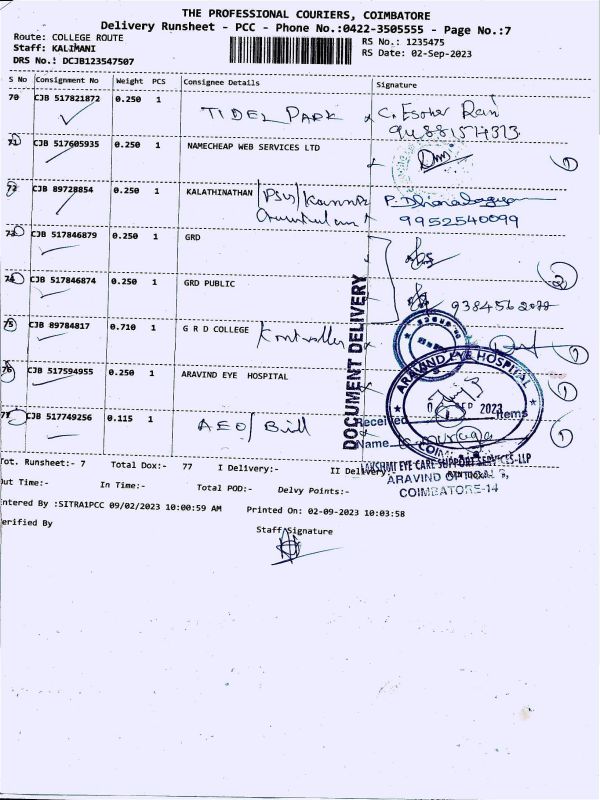 THE PROFESSIONAL COURIERS, COIMBATORE
Delivery Runsheet - PCC - Phone No.:0422-3505555 - Page No.:7
Route: COLLEGE ROUTE
RS No.: 1235475
Staff: KALIMANI
RS Date: 02-Sep-2023
DRS No.: DCJB123547507
S No Consignment No Weight PCS Consignee Details Signature
70 CJB 517821872 0.250 1 TIDEL PARK C. Esther Rani
9488157433
71 CJB 517605935 0.250 1 NAMECHAP WEB SERVICES LTD 1
72 CJB 89728854 0.250 1 KALATHINATHAN
9952540099
73 CJB 517846879 0.250 1 GRD
74 CJB 517846874 0.250 1 GRD PUBLIC 2
9384562077
75 CJB 89784817 0.710 1 G R D COLLEGE Controller 1
76 CJB 517594955 0.250 1 ARAVIND EYE HOSPITAL 1
77 CJB 517749256 0.115 1 AEO/Bill 1
DOCUMENT DELIVERY
ARAVIND EYE HOSPITAL
SEP 2023
Received Items
Name
LAKSHMI EYE CARE SUPPORT SERVICES-LLP
COIMBATORE-14
Tot. Runsheet:- 7 Total Dox:- 77 I Delivery:- II Delivery:-
Out Time:- In Time:- Total POD:- Delvy Points:-
Entered By :SITRA1PCC 09/02/2023 10:00:59 AM Printed On: 02-09-2023 10:03:58
Verified By Staff Signature